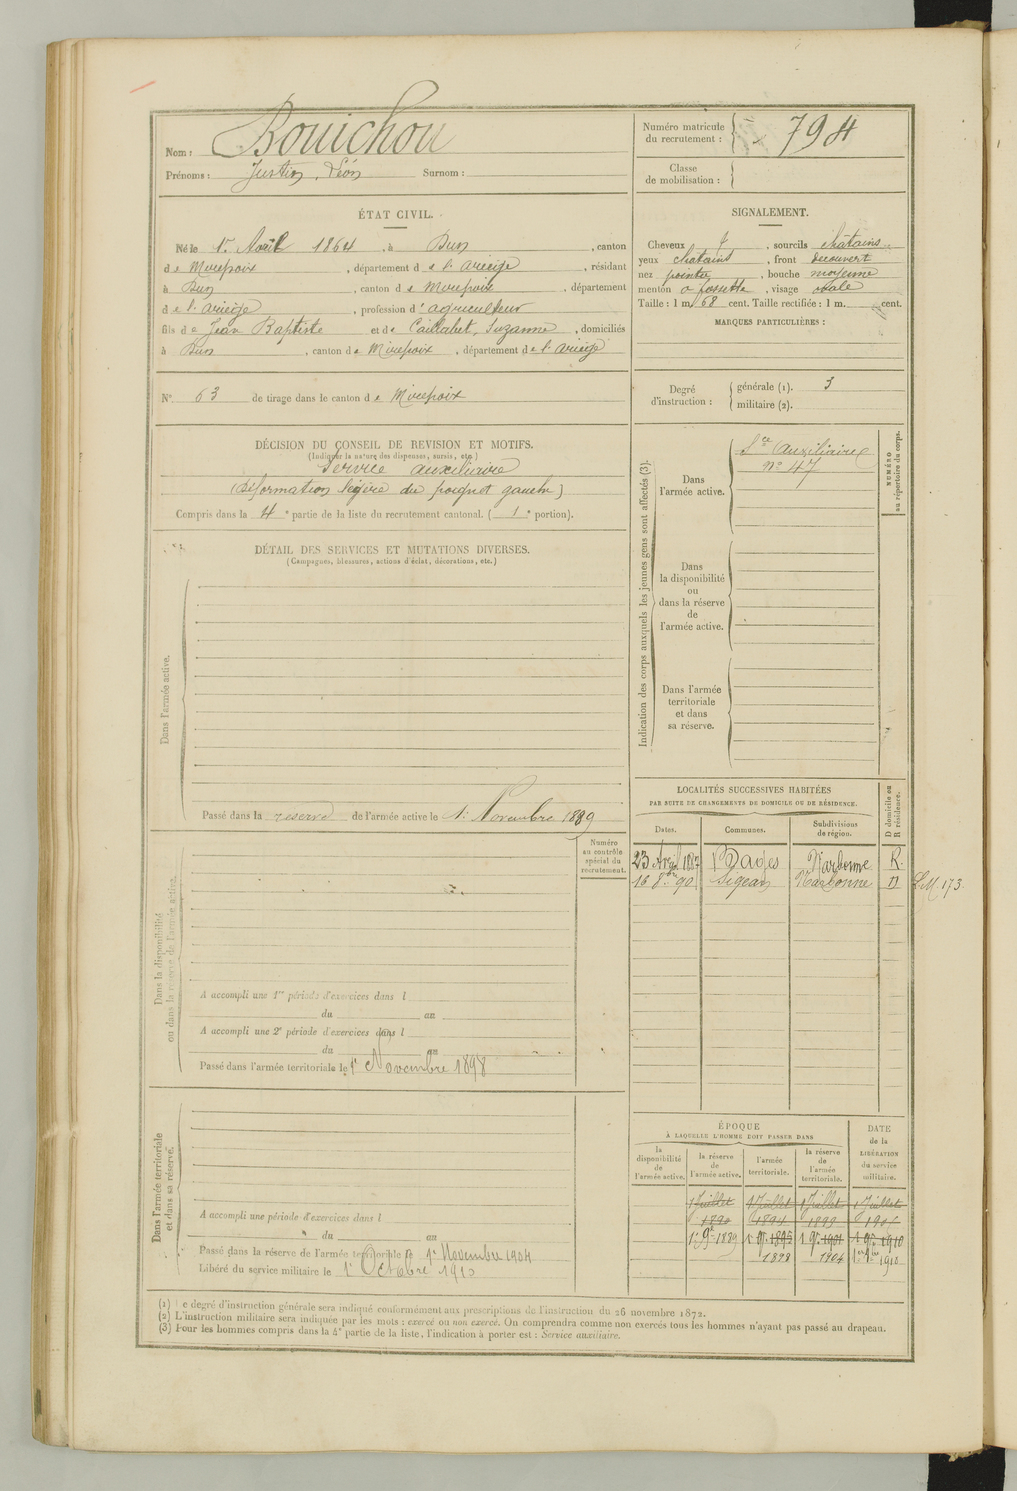 Nom : Bouichou
Prénoms : Justin, Léon Surnom :
Numéro matricule du recrutement : 794
Classe de mobilisation :
ÉTAT CIVIL.
Né le 1er Avril 1864, à Dun, canton
de Mirepoix, département de l'ariège, résidant
à Dun, canton de Mirepoix, département
de l'ariège, profession d'agriculteur
fils de Jean Baptiste et de Caillabet, Suzanne, domiciliés
à Dun, canton de Mirepoix, département de l'ariège
N° 63 de tirage dans le canton de Mirepoix
SIGNALEMENT.
Cheveux, sourcils chatains
yeux chatains, front découvert
nez pointu, bouche moyenne
menton à fossette, visage ovale
Taille : 1 m. 68 cent. Taille rectifiée : 1 m. cent.
MARQUES PARTICULIÈRES :
Degré d'instruction : générale (1). 3
militaire (2).
DÉCISION DU CONSEIL DE REVISION ET MOTIFS.
(Indiquer la nature des dispenses, sursis, etc.)
Service auxiliaire
(déformation légère du poignet gauche)
Compris dans la 4e partie de la liste du recrutement cantonal. (1e portion).
DÉTAIL DES SERVICES ET MUTATIONS DIVERSES.
(Campagnes, blessures, actions d'éclat, décorations, etc.)
Dans l'armée active.
Passé dans la réserve de l'armée active le 1er Novembre 1889
Numéro au contrôle spécial du recrutement.
Dans la disponibilité ou dans la réserve de l'armée active.
A accompli une 1re période d'exercices dans l
du au
A accompli une 2e période d'exercices dans l
du au
Passé dans l'armée territoriale le 1er Novembre 1898
Dans l'armée territoriale et dans sa réserve.
A accompli une période d'exercices dans l
du au
Passé dans la réserve de l'armée territoriale le 1er Novembre 1904
Libéré du service militaire le 1er Octobre 1910
Indication des corps auxquels les jeunes gens sont affectés (3).
Dans l'armée active.
Sce Auxiliaire
N° 47
NUMÉRO au répertoire du corps.
Dans la disponibilité ou dans la réserve de l'armée active.
Dans l'armée territoriale et dans sa réserve.
LOCALITÉS SUCCESSIVES HABITÉES
PAR SUITE DE CHANGEMENTS DE DOMICILE OU DE RÉSIDENCE.
Dates. Communes. Subdivisions de région. D domicile ou R résidence.
23 Avril 1887 Bages Narbonne R.
16 8bre 90 Sigean Narbonne D
L.M. 173.
ÉPOQUE
À LAQUELLE L'HOMME DOIT PASSER DANS
la disponibilité de l'armée active. la réserve de l'armée active. l'armée territoriale. la réserve de l'armée territoriale. DATE de la LIBÉRATION du service militaire.
1 Juillet 1 Juillet 1 Juillet 1 Juillet
1890 1894 1899
1er 9bre 1889 1er 9bre 1895 1er 9bre 1901 1er 9bre 1910
1898 1904 1910
(1) Le degré d'instruction générale sera indiqué conformément aux prescriptions de l'instruction du 26 novembre 1872.
(2) L'instruction militaire sera indiquée par les mots : exercé ou non exercé. On comprendra comme non exercés tous les hommes n'ayant pas passé au drapeau.
(3) Pour les hommes compris dans la 4e partie de la liste, l'indication à porter est : Service auxiliaire.